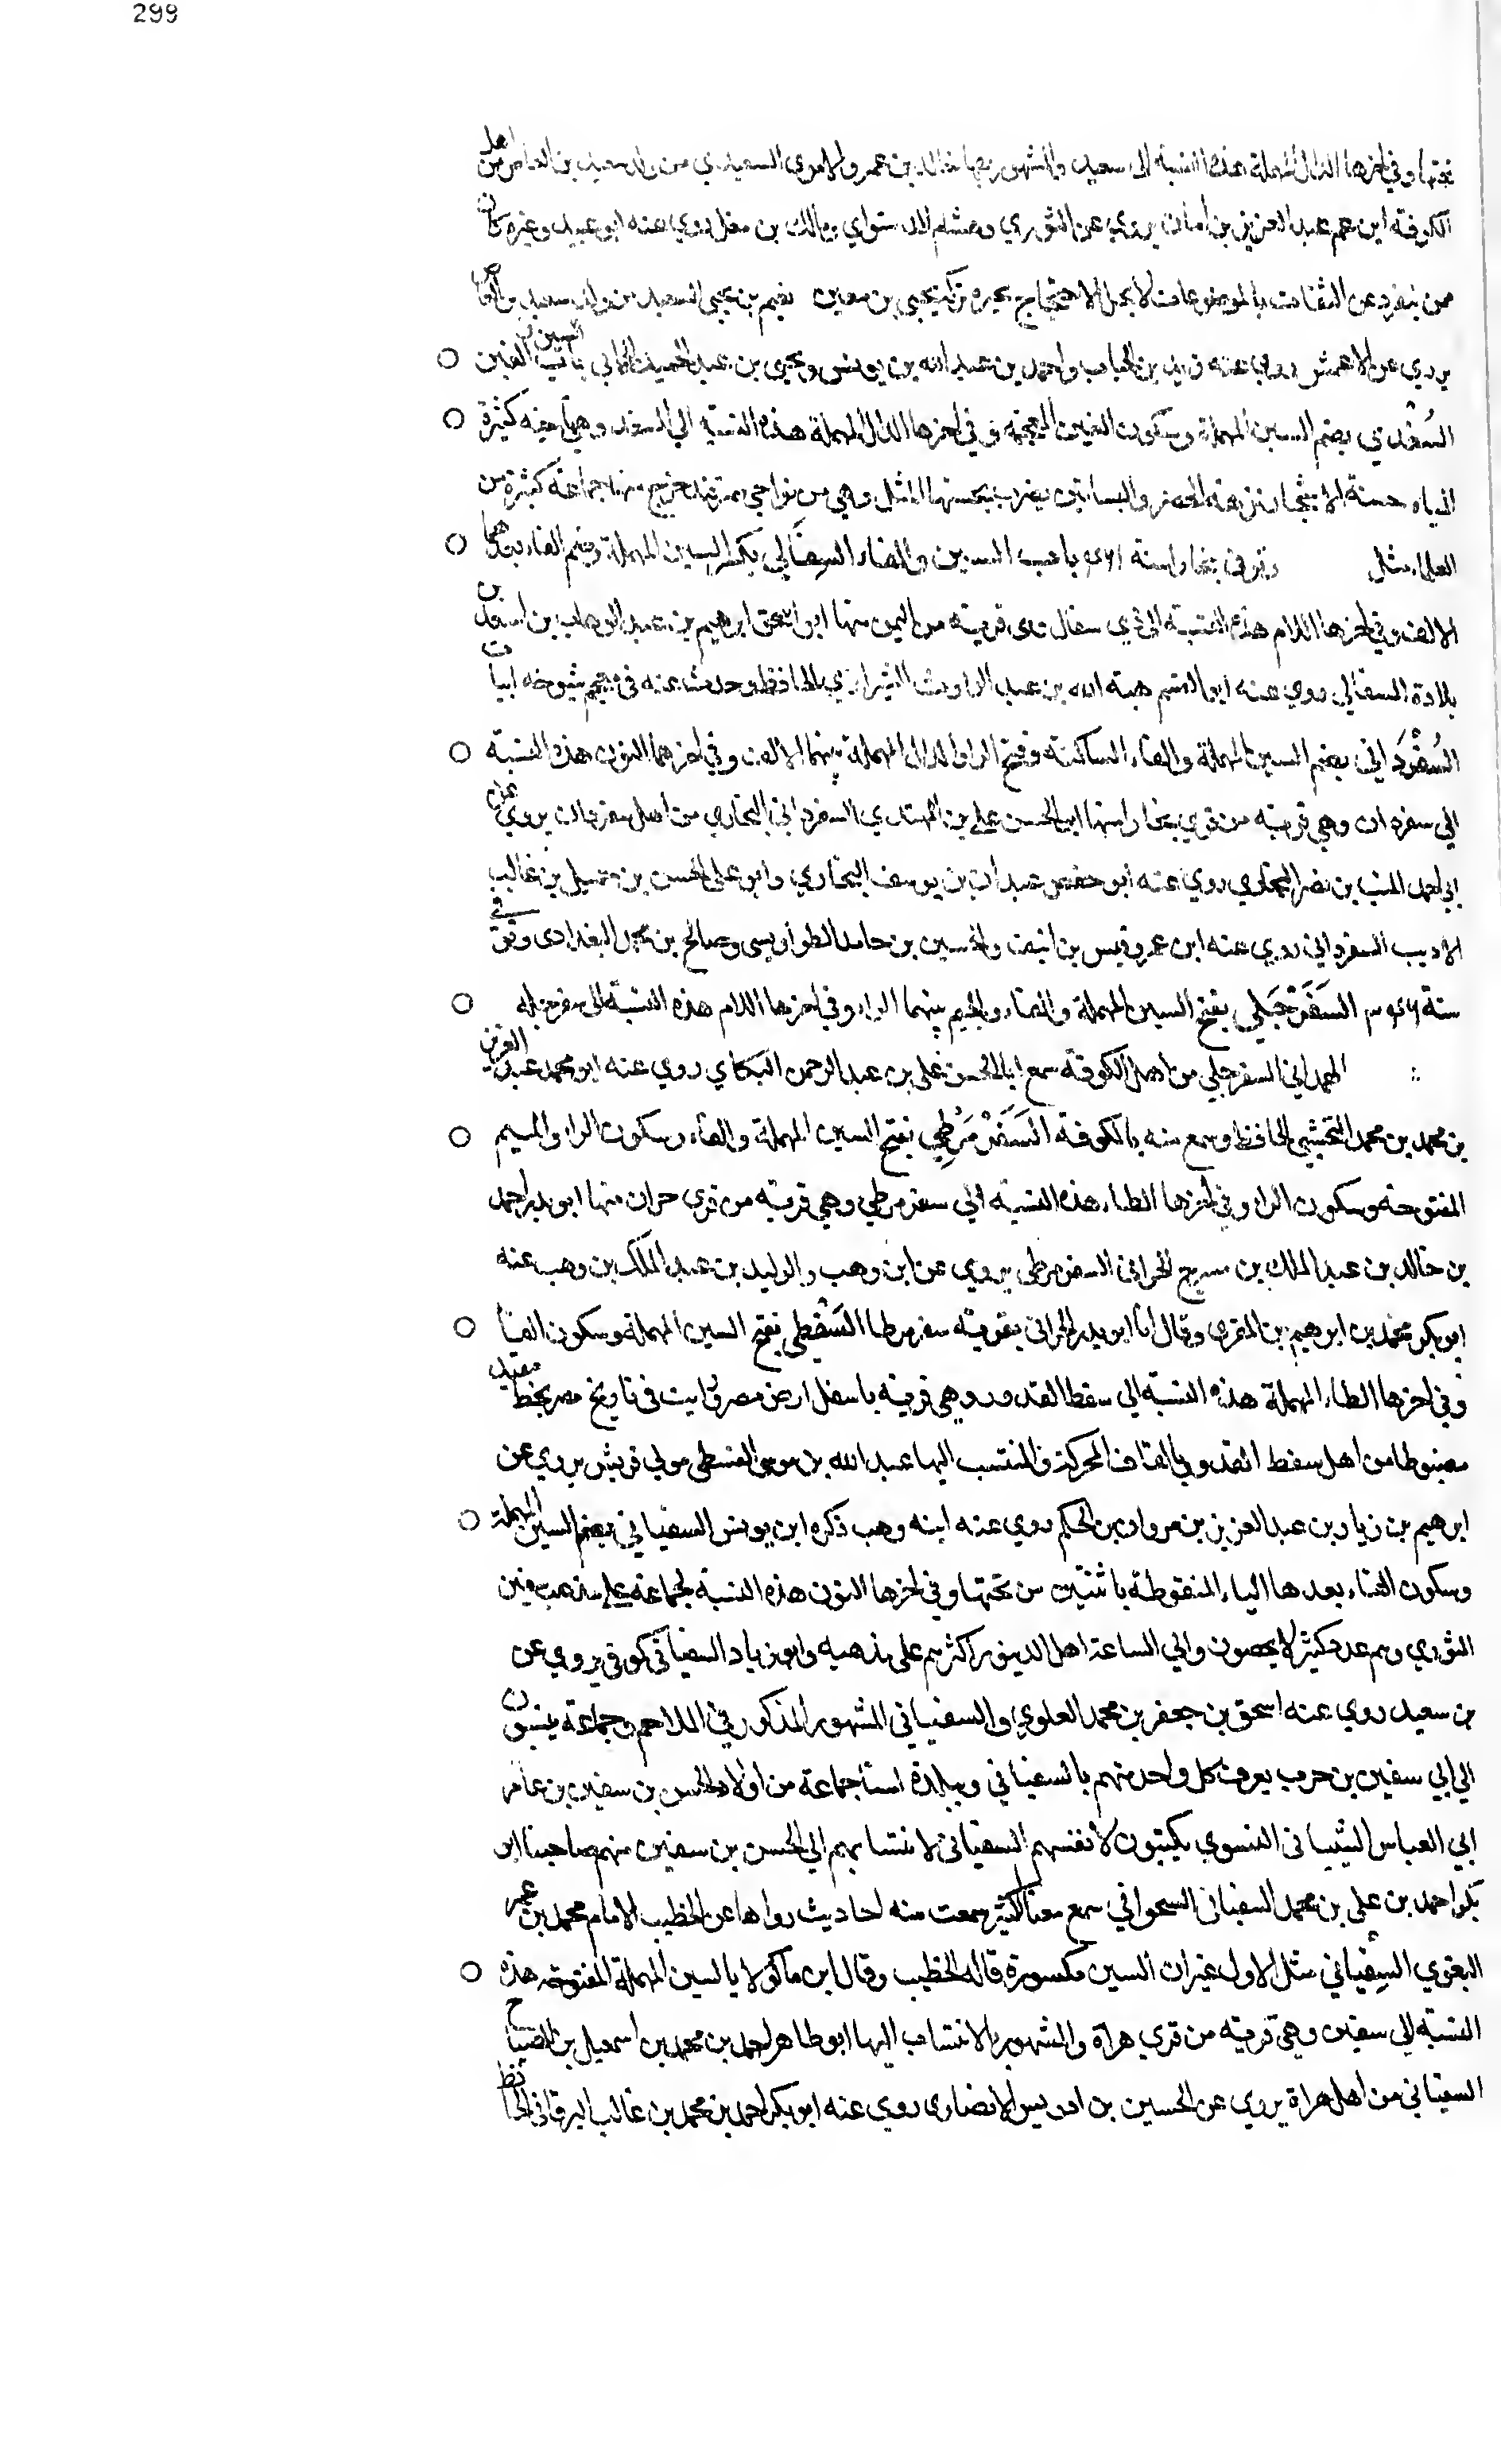 299
تحتها وفي اخرها الدال المهملة هذه النسبة الى سعيد والمشهور بها خالد بن عمرو الاموي السعيدي من ولد سعيد بن العاص من اهل
الكوفة ابن عم عبد العزيز بن ابان يروي عن الثوري وهشام الدستواي ومالك بن مغل روي عنه ابو عبيد وغيره كان
ممن ينفرد عن الثقات بالموضوعات لا يحل الاحتجاج بخبره تركه يحيى بن معين نعيم بن يحيى السعيدي من ولد سعيد بن العاص
يروي عن الاعمش روي عنه زيد بن الحباب واحمد بن عبد الله بن يونس ويحيى بن عبد الحميد الحماني باب السين الغين
السُغْدي بضم السين المهملة وسكون الغين المعجمة وفي اخرها الدال المهملة هذه النسبة الي السغد وهي كثيرة
المياه حسنة الاشجار نزهة والبساتين يضرب بحسنها المثل وهي من نواحي سمرقند خرج منها جماعة كثيرة من
العلماء مثل وتوفى ببخارا سنة باب السين والفاء السفالي بكسر السين المهملة وضم الفاء بعدها
الالف وفي اخرها اللام هذه النسبة الى ذي سفال وهى قرية من اليمن منها ابو اسحق ابرهيم بن عبد الوهاب بن اسعد بن
السفالي روي عنه ابو القسم هبة الله بن عبد الوارث الشيرازي الحافظ وحدث عنه فى معجم شيوخه ابيات
السُفْرَداني بضم السين المهملة والفاء الساكنة وفتح الراء والدال المهملة بينهما الالف وفي اخرهما النون هذه النسبة
الي سفردان وهي قرية من قري بخارا منها ابو الحسن علي بن المهتدي السفرداني البخاري من اهل سفردان يروي عن
ابي احمد بن نصر البخاري روي عنه ابو حفص عبدان بن يوسف البخاري وابو علي الحسن بن بن غالب
الاديب السفرداني روي عنه ابن عمرو قيس بن انيف والحسين بن حامد الطواويسي وصالح بن محمد البغدادى وتوفي
سنة السَفَرْجَلي بفتح السين المهملة والفاء والجيم بينهما الراء وفي اخرها اللام هذه النسبة الى سفرجله
الهمداني السفرجلي من اهل الكوفة سمع ابا الحسن علي بن عبد الرحمن البكاي روي عنه ابو محمد عبد العزيز
بن محمد بن محمد النخشبي الحافظ وسمع منه بالكوفة السَفَرْمَرْطي بفتح السين المهملة والفاء وسكون الراء والميم
المفتوحة وسكون الراء وفي اخرها الطاء هذه النسبة الي سفرمرطي وهي قرية من قري حران منها ابو بدر احمد
بن خالد بن عبد الملك بن مسرح الحراني السفرمرطي يروي عن ابن وهب والوليد بن عبد الملك بن وهب عنه
ابو بكر محمد بن ابرهيم بن المقري وقال انا ابو بدر الحراني بقرية سفرمرطا السَفْطي بفتح السين المهملة وسكون الفاء
وفي اخرها الطاء المهملة هذه النسبة الي سفط القدور وهي قرية باسفل ارض مصر رايت في تاريخ مصر بخط مقيد
مضبوطا من اهل سفط القدور بالقاف المحركة والمنتسب اليها عبد الله بن موسى السفطي مولي قريش يروي عن
ابرهيم بن زياد بن عبد العزيز بن مروان بن الحكم روي عنه ابنه وهب ذكره ابن يونس السفياني بضم السين المهملة
وسكون الفاء بعدها الياء المنقوطة باثنتين من تحتها وفي اخرها النون هذه النسبة لجماعة علي مذهب سفين
الثوري وهم عدد كثير لا يحصون والي الساعة اهل الدينور اكثرهم على مذهبه وابو زياد السفياني كوفي يروي عن
بن سعيد روي عنه اسحق بن جعفر بن محمد العلوي والسفياني المشهور المذكور في الملاحم وجماعة ينسبون
الي ابي سفين بن حرب يعرف كل واحد منهم بالسفياني وببلدة نسا جماعة من اولاد الحسن بن سفين بن عامر
ابي العباس الشيباني النسوي يكتبون لانفسهم السفياني لانتسابهم الي الحسن بن سفين منهم صاحبنا ابو
بكر احمد بن علي بن محمد السفياني سمع معنا الكثير سمعت منه احاديث رواها عن الخطيب الامام محمد بن عمر
البغوي السِفْياني مثل الاول غير ان السين مكسورة قاله الخطيب وقال ابن ماكولا بالسين المهملة المفتوحة هذه
النسبة الي سفين وهي قرية من قري هراة والمشهور بالانتساب اليها ابو طاهر احمد بن محمد بن اسمعيل بن الصباح
السفياني من اهل هراة يروي عن الحسين بن ادريس الانصاري روي عنه ابو بكر احمد بن محمد بن غالب البرقاني الحافظ